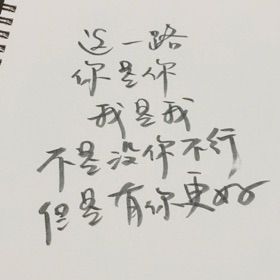 这一路
你是你
我是我
不是没你不行
但是有你更好